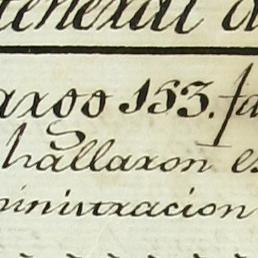 eneral d
argo 153. fa
hallaron es
ministracion